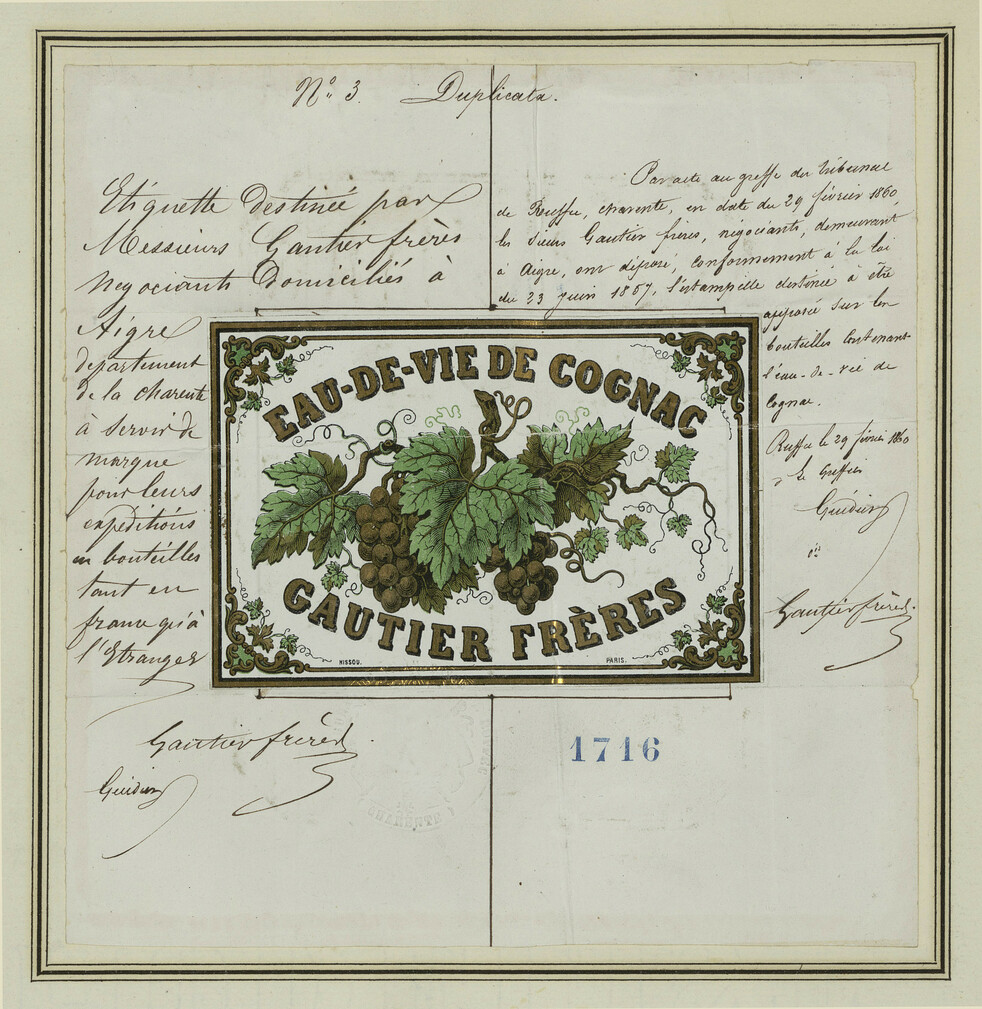 N° 3. Duplicata.
Etiquette destinée par
Messieurs Gautier frères
negociants Domiciliés à
Aigre
departement
de la charente
à servir de
marque
pour leurs
expéditions
en bouteilles
tant en
france qu'à
l'Etranger
Gautier frères.
Guidier
Par acte au greffe du tribunal
de Ruffec, charente, en date du 29 février 1860
les sieurs Gautier frères, négociants, demeurant
à Aigre, ont déposé, conformement à la loi
du 23 juin 1857, l'estampille destinée à être
apposée sur les
bouteilles contenant
l'eau-de-vie de
Cognac.
Ruffec le 29 février 1860
Le Greffier
Gautier frères.
EAU-DE-VIE DE COGNAC
GAUTIER FRÈRES
NISSOU. PARIS.
1716
CHARENTE